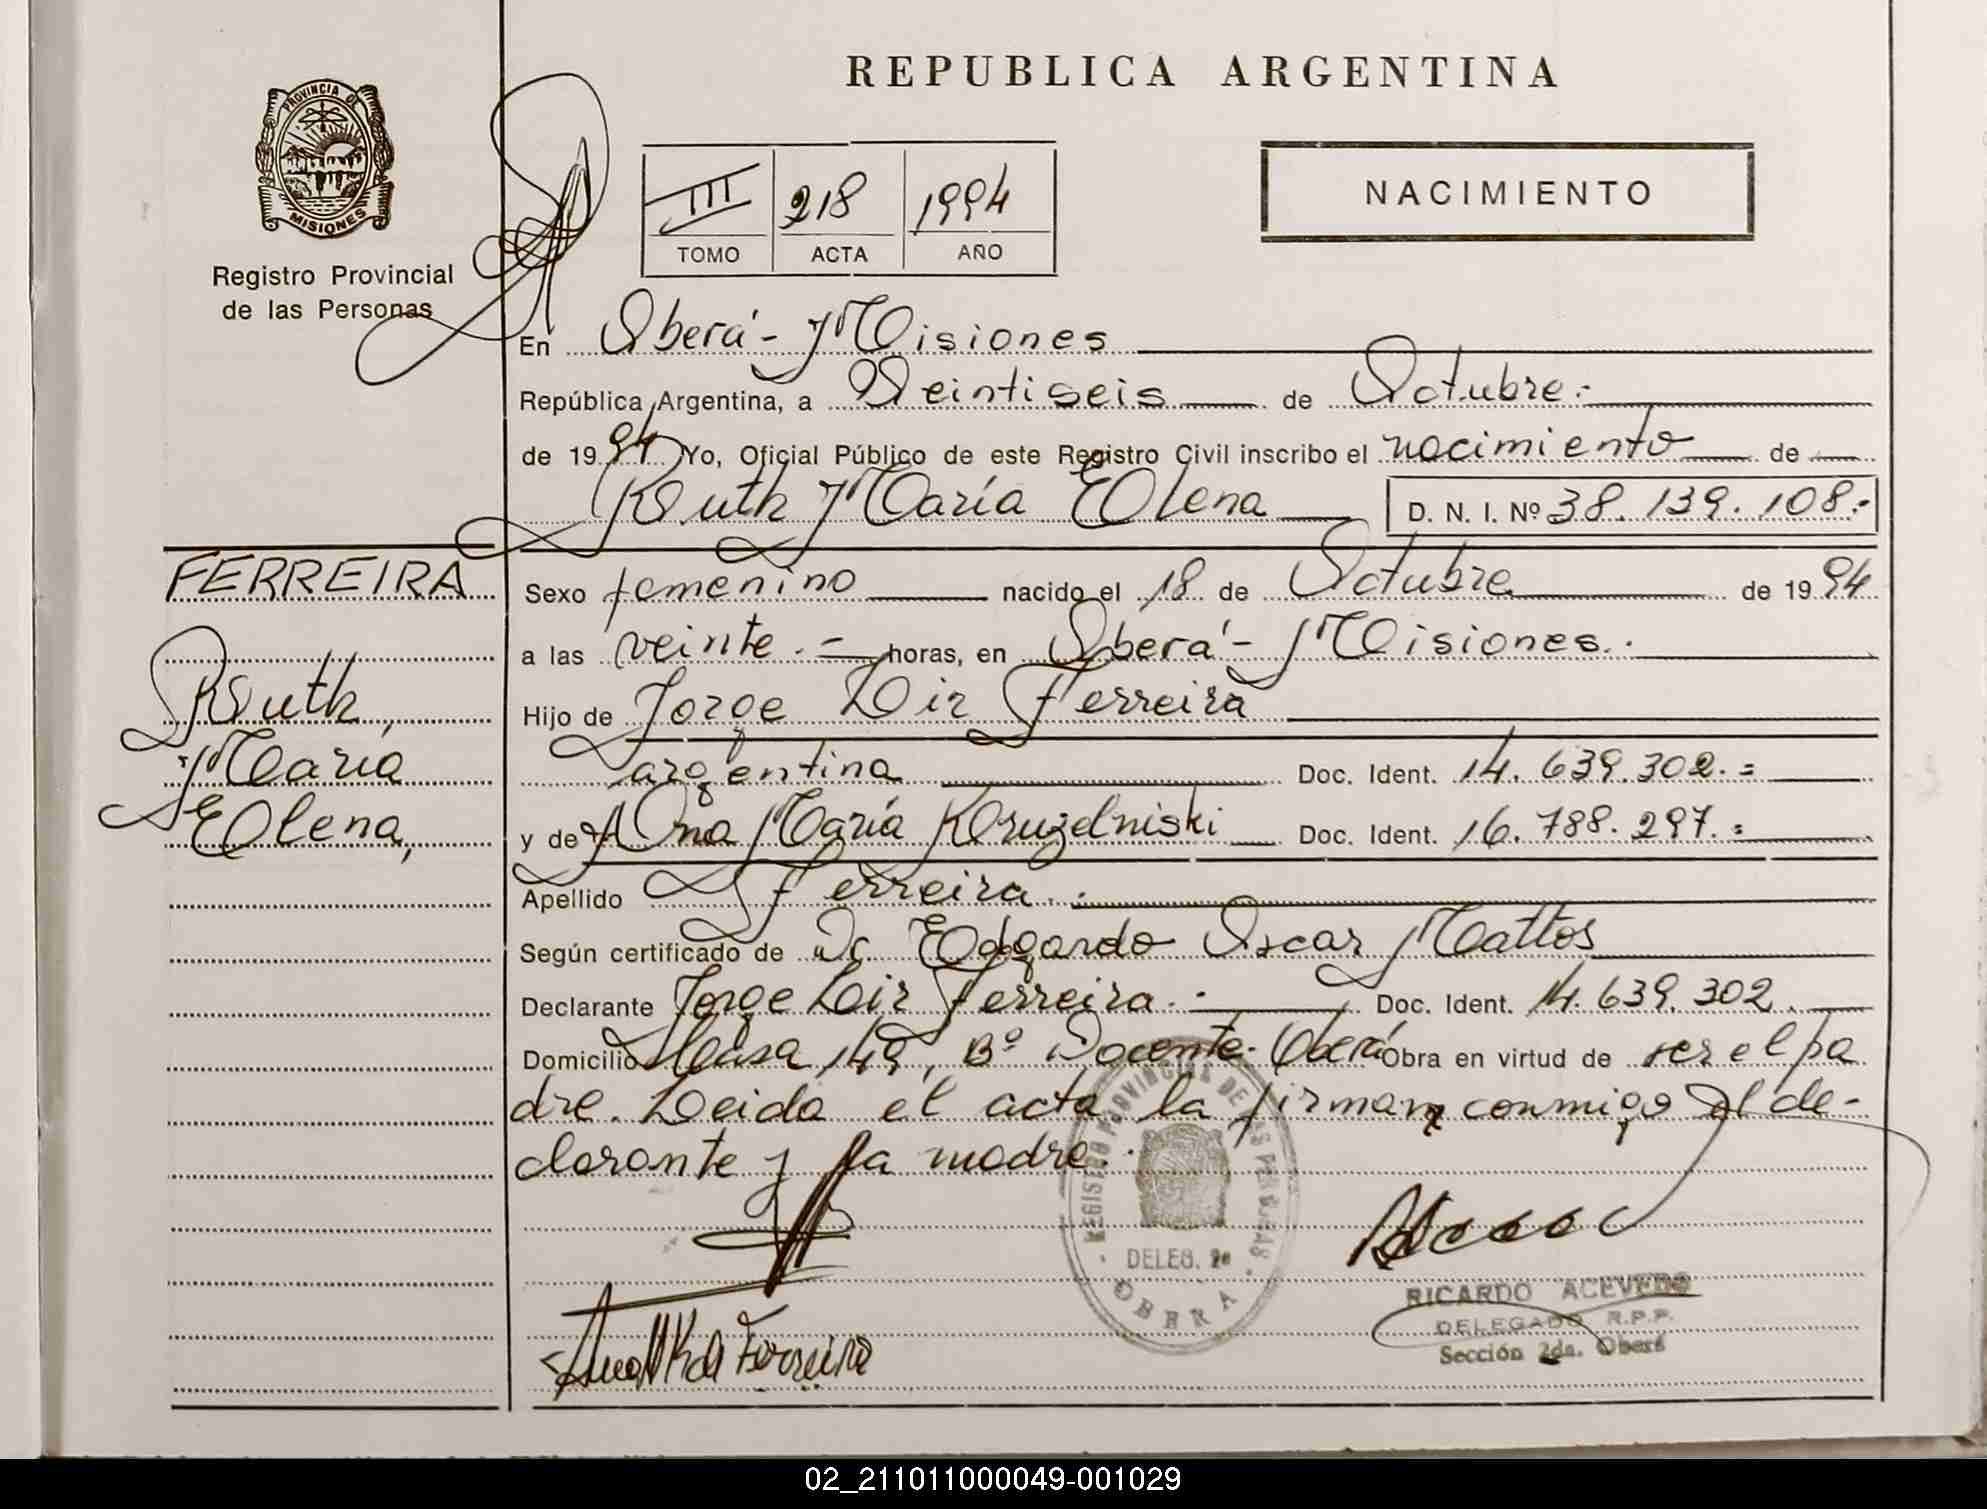 REPUBLICA ARGENTINA
PROVINCIA DE
MISIONES
Registro Provincial
de las Personas
III 218 1994
TOMO ACTA AÑO
NACIMIENTO
En Oberá - Misiones
República Argentina, a Veintiseis de Octubre.-
de 1994 Yo, Oficial Público de este Registro Civil inscribo el nacimiento de
Ruth María Elena D. N. I. Nº 38.139.108.-
FERREIRA
Ruth
María
Elena,
Sexo femenino nacido el 18 de Octubre de 1994
a las veinte.- horas, en Oberá - Misiones.
Hijo de Jorge Lir Ferreira
argentina Doc. Ident. 14.639.302.=
y de Ana María Kruzelniski Doc. Ident. 16.788.297.=
Apellido Ferreira.-
Según certificado de Dr. Edgardo Oscar Mattos
Declarante Jorge Lir Ferreira.- Doc. Ident. 14.639.302.
Domicilio Casa 149, Bº Docente-Oberá Obra en virtud de ser el pa
dre. Leida el acta la firman conmigo el de-
clarante y la madre.
REGISTRO PROVINCIAL DE LAS PERSONAS
DELEG. 2a
OBERA
Ferreira
RICARDO ACEVEDO
DELEGADO R.P.P.
Sección 2da. Oberá
02_211011000049-001029